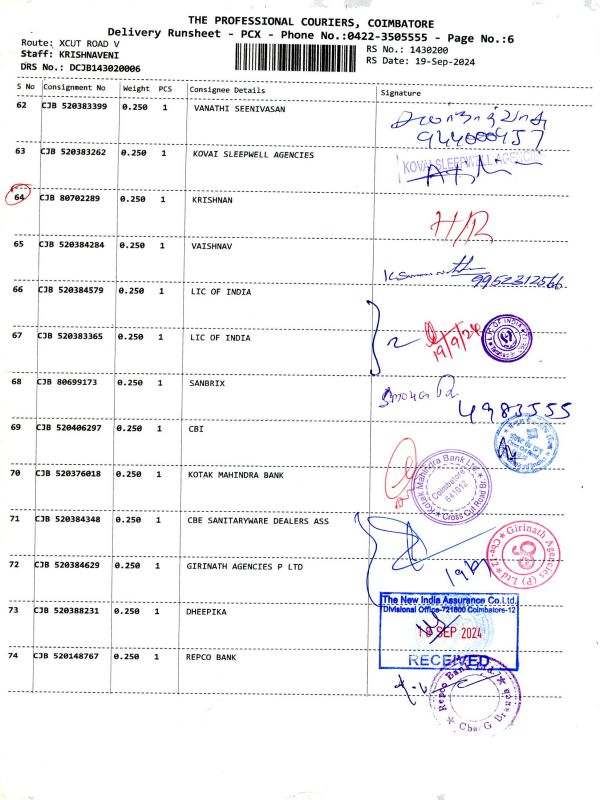 THE PROFESSIONAL COURIERS, COIMBATORE
Delivery Runsheet - PCX - Phone No.:0422-3505555 - Page No.:6
Route: XCUT ROAD V
RS No.: 1430200
Staff: KRISHNAVENI
RS Date: 19-Sep-2024
DRS No.: DCJB143020006
S No Consignment No Weight PCS Consignee Details Signature
62 CJB 520383399 0.250 1 VANATHI SEENIVASAN
63 CJB 520383262 0.250 1 KOVAI SLEEPWELL AGENCIES
KOVAI SLEEPWELL AGENCIES
64 CJB 80702289 0.250 1 KRISHNAN
H/R
65 CJB 520384284 0.250 1 VAISHNAV
9952312566
66 CJB 520384579 0.250 1 LIC OF INDIA
67 CJB 520383365 0.250 1 LIC OF INDIA
19/9/24
LIC OF INDIA
68 CJB 80699173 0.250 1 SANBRIX
4983555
69 CJB 520406297 0.250 1 CBI
70 CJB 520376018 0.250 1 KOTAK MAHINDRA BANK
Kotak Mahindra Bank Ltd.
Coimbatore
641012
Cross Cut Road Br.
71 CJB 520384348 0.250 1 CBE SANITARYWARE DEALERS ASS
72 CJB 520384629 0.250 1 GIRINATH AGENCIES P LTD
Girinath Agencies (P) Ltd
Cbe-12
73 CJB 520388231 0.250 1 DHEEPIKA
The New India Assurance Co.Ltd.
Divisional Office-721800 Coimbatore-12
19 SEP 2024
RECEIVED
74 CJB 520148767 0.250 1 REPCO BANK
Repco Bank Ltd.
Cbe. G Branch